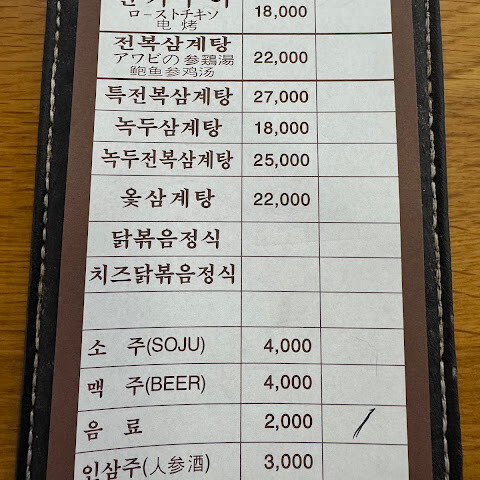 ローストチキン 18,000
电 烤
전복삼계탕 22,000
アワビの 参鶏湯
鲍鱼 参鸡汤
특전복삼계탕 27,000
녹두삼계탕 18,000
녹두전복삼계탕 25,000
옻삼계탕 22,000
닭볶음정식
치즈닭볶음정식
소 주(SOJU) 4,000
맥 주(BEER) 4,000
음 료 2,000 /
인삼주(人参酒) 3,000